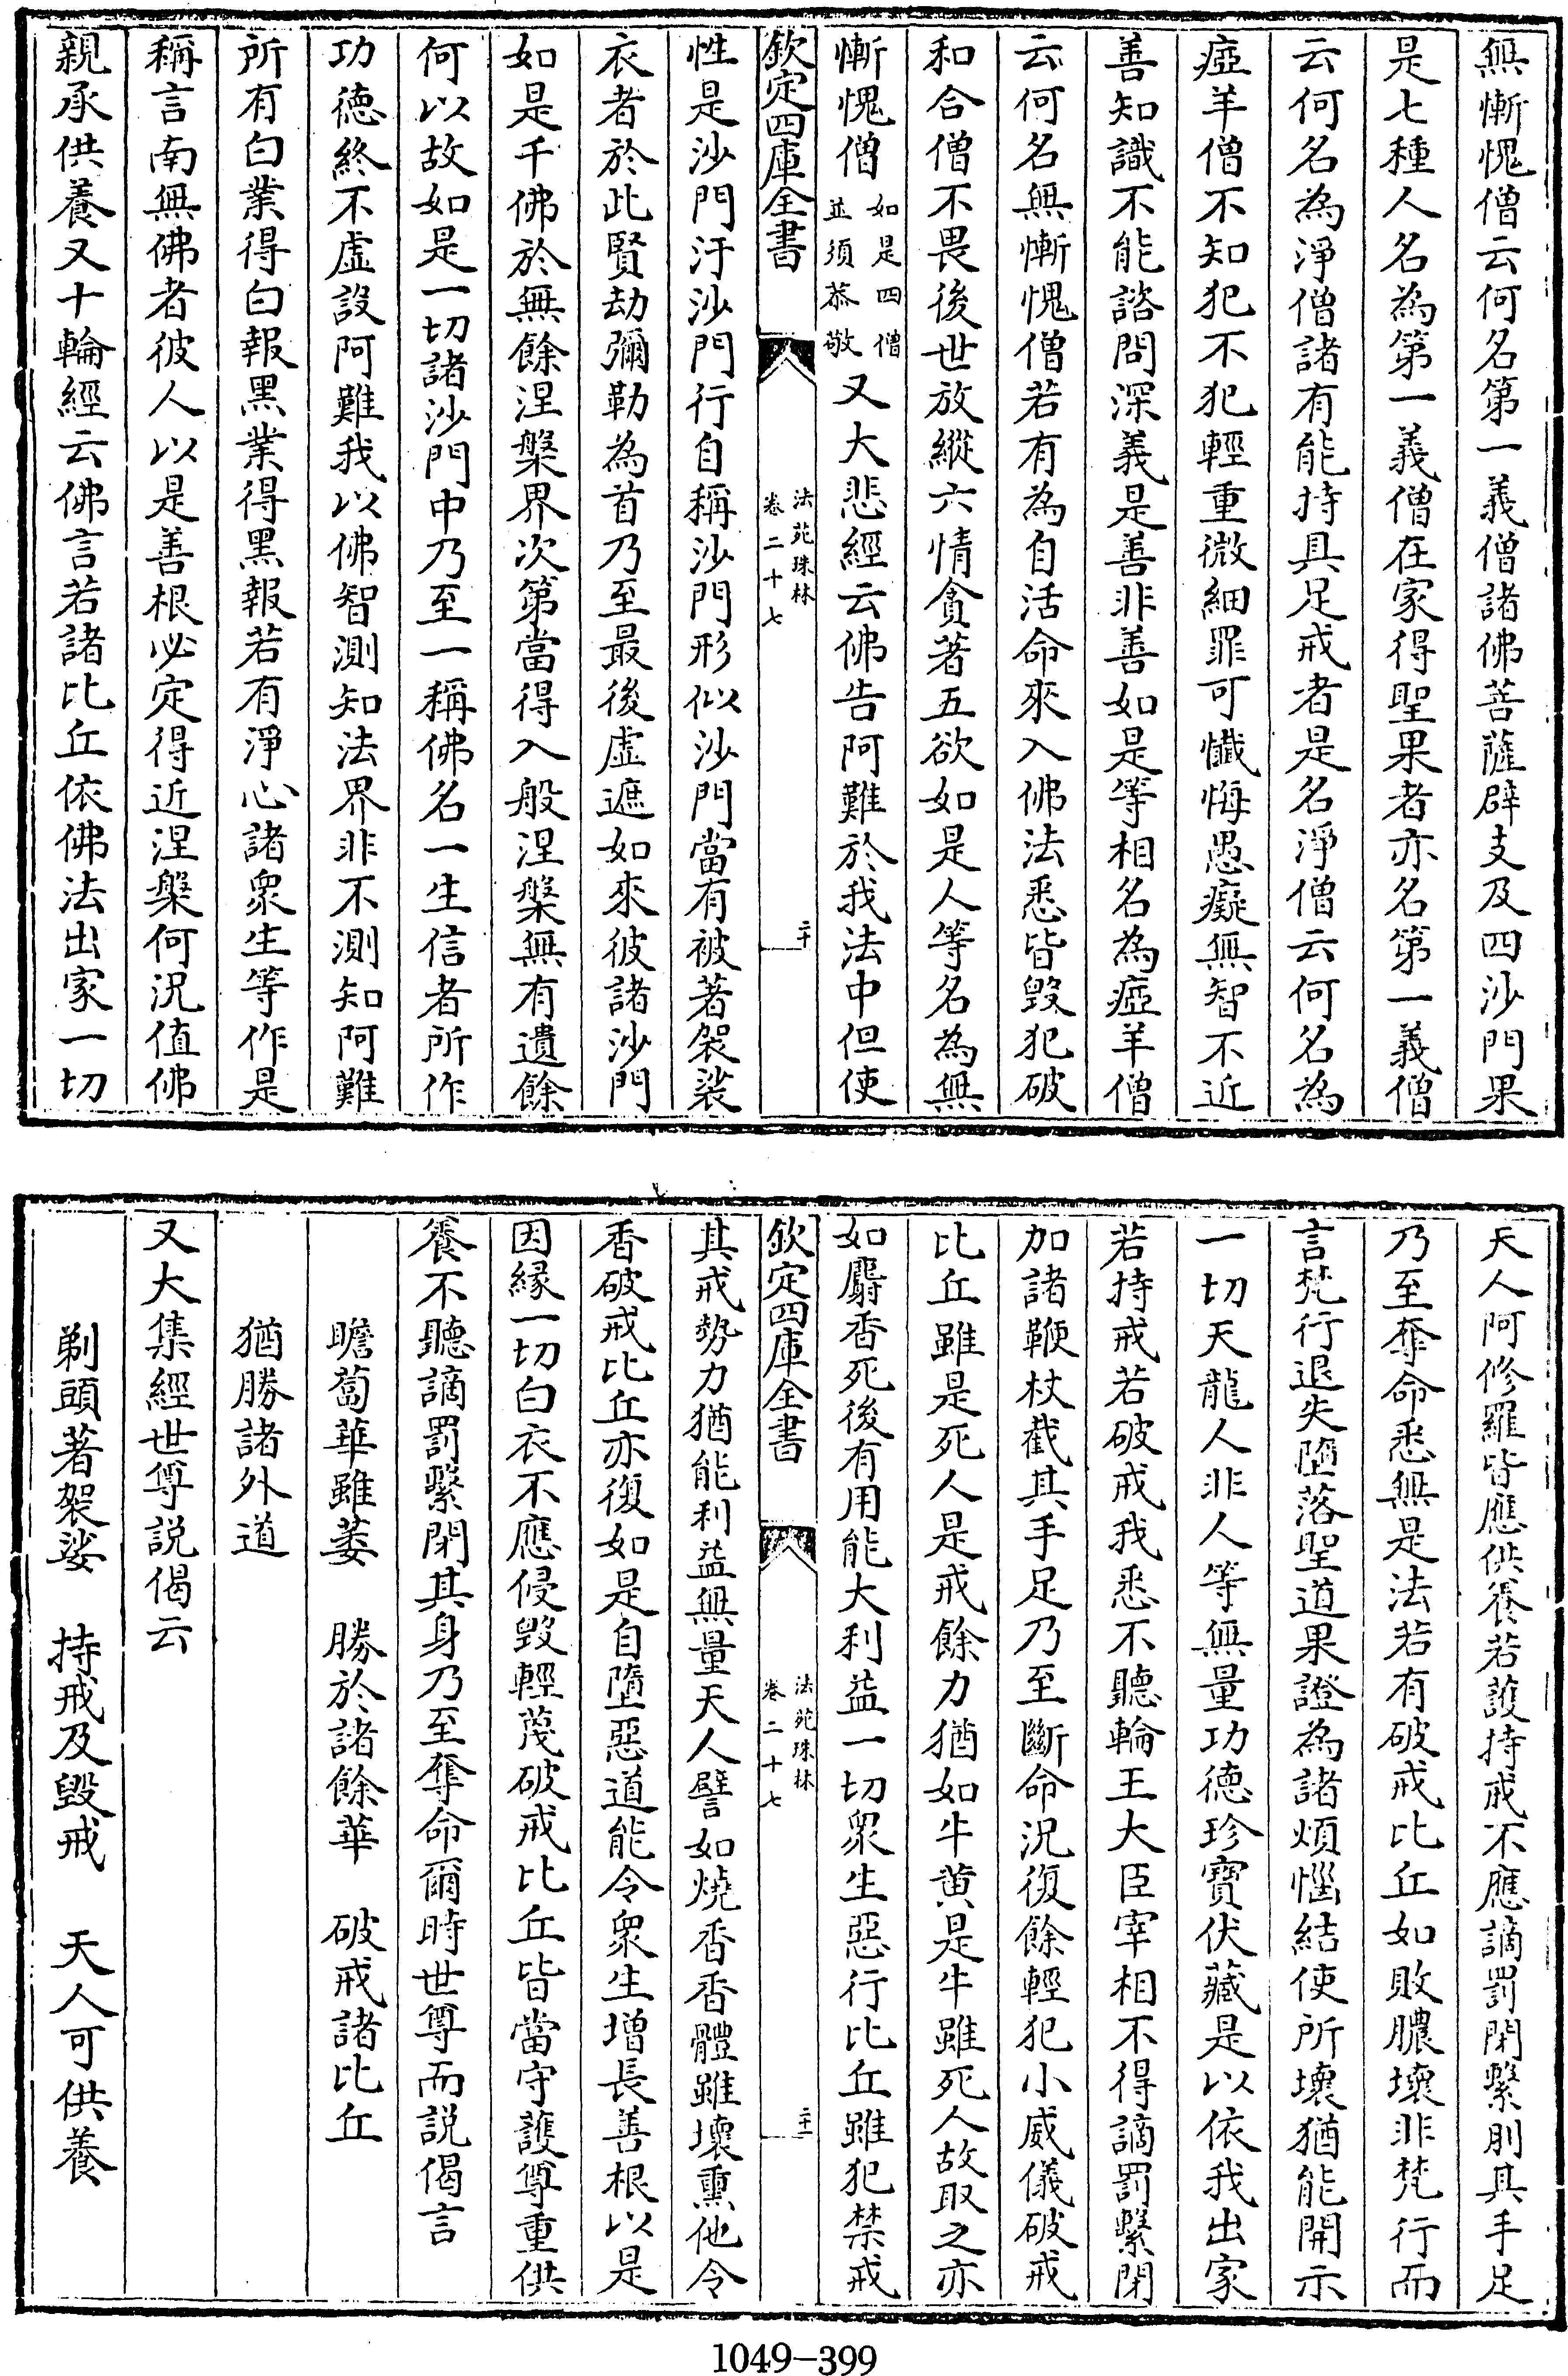 無慚愧僧云何名第一義僧諸佛菩薩辟支及四沙門果
是七種人名為第一義僧在家得聖果者亦名第一義僧
云何名為淨僧諸有能持具足戒者是名淨僧云何名為
瘂羊僧不知犯不犯輕重微細罪可懺悔愚癡無智不近
善知識不能諮問深義是善非善如是等相名為瘂羊僧
云何名無慚愧僧若有為自活命來入佛法悉皆毁犯破
和合僧不畏後世放縱六情貪著五欲如是人等名為無
慚愧僧如是四僧並須恭敬又大悲經云佛告阿難於我法中但使
欽定四庫全書
法苑珠林
卷二十七
二十
性是沙門汙沙門行自稱沙門形似沙門當有被著袈裟
衣者於此賢劫彌勒為首乃至最後虛遮如來彼諸沙門
如是千佛於無餘涅槃界次第當得入般涅槃無有遺餘
何以故如是一切諸沙門中乃至一稱佛名一生信者所作
功德終不虛設阿難我以佛智測知法界非不測知阿難
所有白業得白報黑業得黑報若有淨心諸衆生等作是
稱言南無佛者彼人以是善根必定得近涅槃何況值佛
親承供養又十輪經云佛言若諸比丘依佛法出家一切
天人阿修羅皆應供養若護持戒不應謫罰閉繫刖其手足
乃至奪命悉無是法若有破戒比丘如敗膿壞非梵行而
言梵行退失墮落聖道果證為諸煩惱結使所壞猶能開示
一切天龍人非人等無量功德珍寶伏藏是以依我出家
若持戒若破戒我悉不聽輪王大臣宰相不得謫罰繫閉
加諸鞭杖截其手足乃至斷命況復餘輕犯小威儀破戒
比丘雖是死人是戒餘力猶如牛黄是牛雖死人故取之亦
如麝香死後有用能大利益一切衆生惡行比丘雖犯禁戒
欽定四庫全書
法苑珠林
卷二十七
二十一
其戒勢力猶能利益無量天人譬如燒香香體雖壞熏他令
香破戒比丘亦復如是自墮惡道能令衆生增長善根以是
因緣一切白衣不應侵毁輕蔑破戒比丘皆當守護尊重供
養不聽謫罰繫閉其身乃至奪命爾時世尊而説偈言
瞻蔔華雖萎　勝於諸餘華　破戒諸比丘
猶勝諸外道
又大集經世尊説偈云
剃頭著袈裟　持戒及毁戒　天人可供養
1049-399